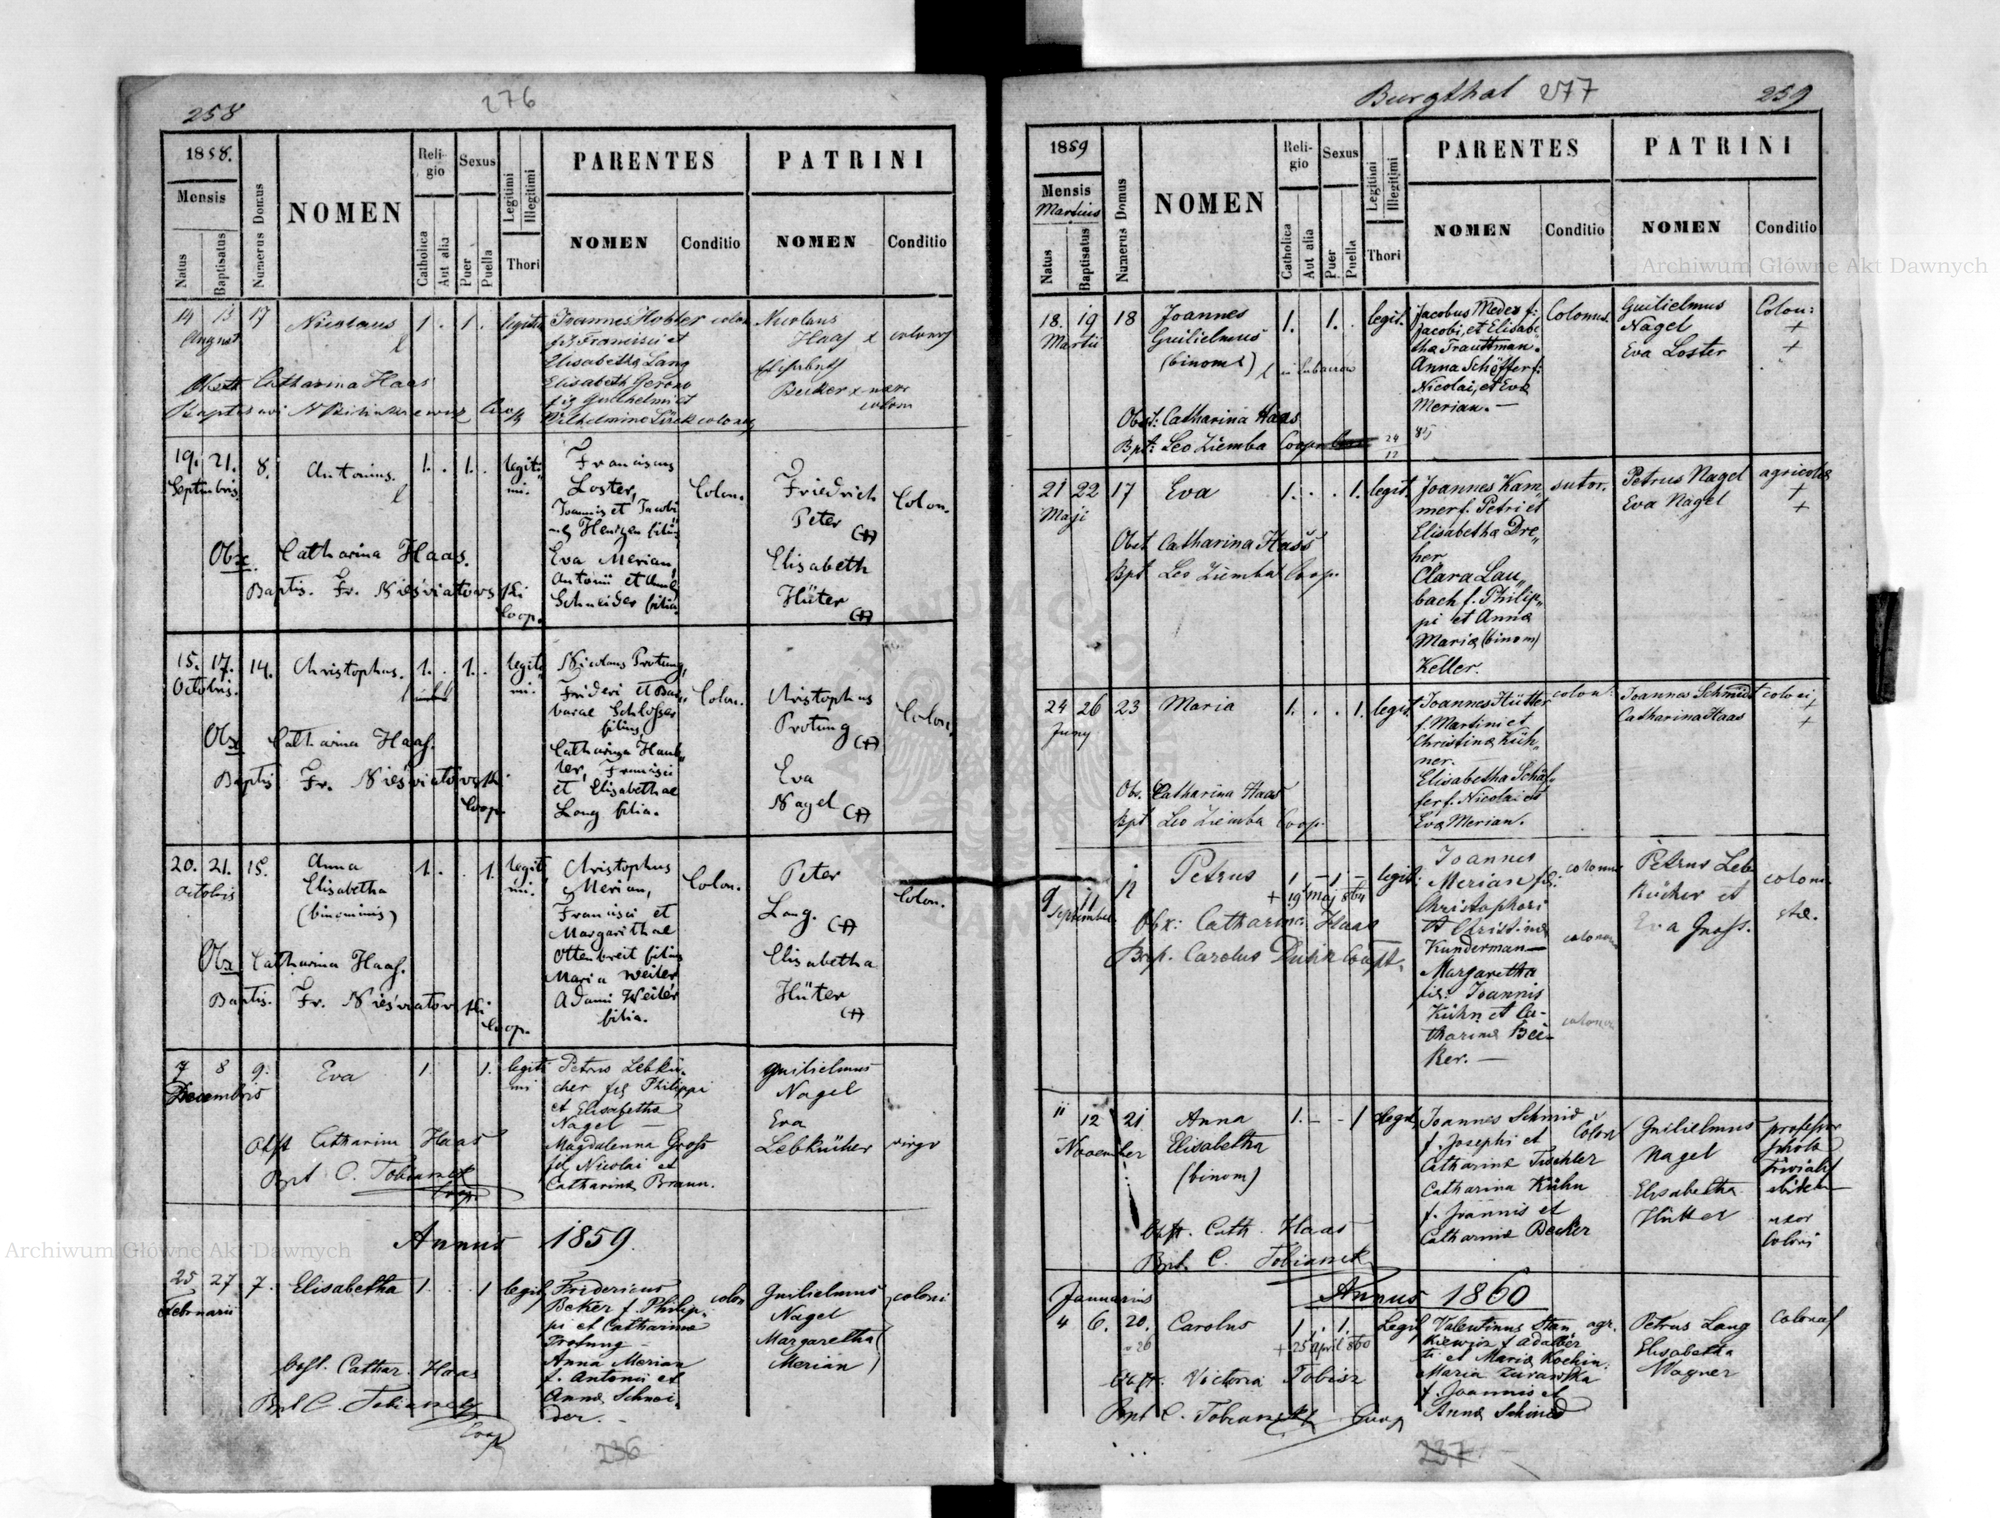 258
276
1858.
Mensis
Natus
Baptisatus
Numerus Domus
NOMEN
Religio
Catholica
Aut alia
Sexus
Puer
Puella
Legitimi
Illegitimi
Thori
PARENTES
NOMEN
Conditio
PATRINI
NOMEN
Conditio
14 15 17 Nicolaus 1 . 1. legitimi
August
Joannes colon
Francisci et
Elisabetha Lang
Elisabeth
Nicolaus
Haas x colonus
Elisabeth
Becker x
Obstt Catharina Haas
19. 21. 8. Antonius. 1. . 1. . legiti
Septembris mi.
Franciscus
Loster,
Joannis et Jacobi
Eva Merian,
Antonii et
Schneider filia.
Colon.
Friedrich
Peter
(+)
Elisabeth
Hüter
(+)
Colon.
Obx. Catharina Haas.
Baptis. Fr. Nieświatowski
Coop.
15. 17. 14. Christophus. 1. . 1. . legiti
Octobris. mi.
Nicolaus Protung,
Frideri et Bar
barae Schlosser
filius,
Catharina
Francisci
et Elisabethae
Lang filia.
Colon.
Christophus
Protung
(+)
Eva
Nagel (+)
Colon.
Obx Catharina Haas.
Baptis. Fr. Nieświatowski
Coop.
20. 21. 15. Anna 1. . . 1. legiti
Octobris Elisabetha mi.
(binominis)
Christophus
Merian,
Francisci et
Margarithae
Ottenbreit filius
Maria Weiler
Adami Weiler
filia.
Colon.
Peter
Lang. (+)
Elisabetha
Hüter
(+)
Colon.
Obx Catharina Haas.
Baptis. Fr. Nieświatowski
Coop.
7 8 9. Eva 1. 1. legiti
Decembris mi
Petrus Lebkü-
cher fil Philippi
et Elisabetha
Nagel —
Magdalenna Gross
fil Nicolai et
Catharina Braun.
Guilielmus
Nagel
Eva
Lebkücher virgo
Obst Catharina Haas
Bpt C. Tobianek
Coop
Annus 1859.
25 27 7. Elisabetha 1. . . 1 legit
Februarii
Fridericus
Beker f. Philip-
pi et Catharina
Protung —
Anna Merian
f. Antonii et
Anna Schnei
der. -
colon
Guilielmus
Nagel
Margaretha
Merian
coloni
Obst. Cathar. Haas
Bpt C. Tobianek
Coop
236
Burgthal 277
259
1859
Mensis
Martius
Natus
Baptisatus
Numerus Domus
NOMEN
Religio
Catholica
Aut alia
Sexus
Puer
Puella
Legitimi
Illegitimi
Thori
PARENTES
NOMEN
Conditio
PATRINI
NOMEN
Conditio
Archiwum Główne Akt Dawnych
18. 19 18 Joannes 1. 1. . legit.
Martii Guilielmus
(binom)
Jacobus Meder f:
Jacobi, et Elisabe
tha Trauttman.
Anna Schöffer f:
Nicolai, et Eva
Merian. —
Colonus.
Guilielmus
Nagel
Eva Loster
Colon:
+
+
Obst: Catharina Haas
Bpt: Leo Ziemba Coop
21 22 17 Eva 1. . . 1. legit.
Maji
Joannes Kam
mer f. Petri et
Elisabetha Dre„
her
Clara Lau„
bach f. Philip„
pi et Anna
Maria (binom)
Keller.
sutor.
Petrus Nagel
Eva Nagel
agricola
+
+
Obst Catharina Haas
Bpt Leo Ziemba Coop.
24 26 23 Maria 1. . . 1. legit.
Juny
Joannes Hütter
f. Martini et
Christina Küh„
ner.
Elisabetha Schäf
fer f. Nicolai et
Eva Merian.
colon:
Joannes Schmidt
Catharina Haas
coloni
+
+
Ob. Catharina Haas
Bpt Leo Ziemba Coop.
9 11 Petrus 1 — 1 — legit:
Septembri + 19 maj 864
Joannes
Merian fil:
Christophori
et Christina
Kunderman—
Margaretha
fil: Joannis
Kühn et Ca-
tharina Bec-
ker. —
colonus
Petrus Leb
kücher et
Eva Gross.
coloni
Obx: Catharina Haas
Bap. Carolus
11 12 21. Anna 1. - - 1 legit
November Elisabetha
(binom)
Joannes Schmid
f. Josephi et
Catharina Tuchler
Catharina Kühn
f. Joannis et
Catharina Becker
Colon
Guilielmus
Nagel
Elisabetha
Hütter
professor
uxor
Coloni
Obst. Cath. Haas
Bpt. C. Tobianek
Januarius Annus 1860
4 6. 20. Carolus 1 . 1. Legit
+ 25 April 860
Valentinus Stan
kiewicz f Adalber
ti et Maria Kochin.
Maria Zurawska
f. Joannis et
Anna Schmid
agr.
Petrus Lang
Elisabetha
Wagner
Colonus
Obst. Victoria Tobisz
Bpt C. Tobianek Coop
237
Archiwum Główne Akt Dawnych